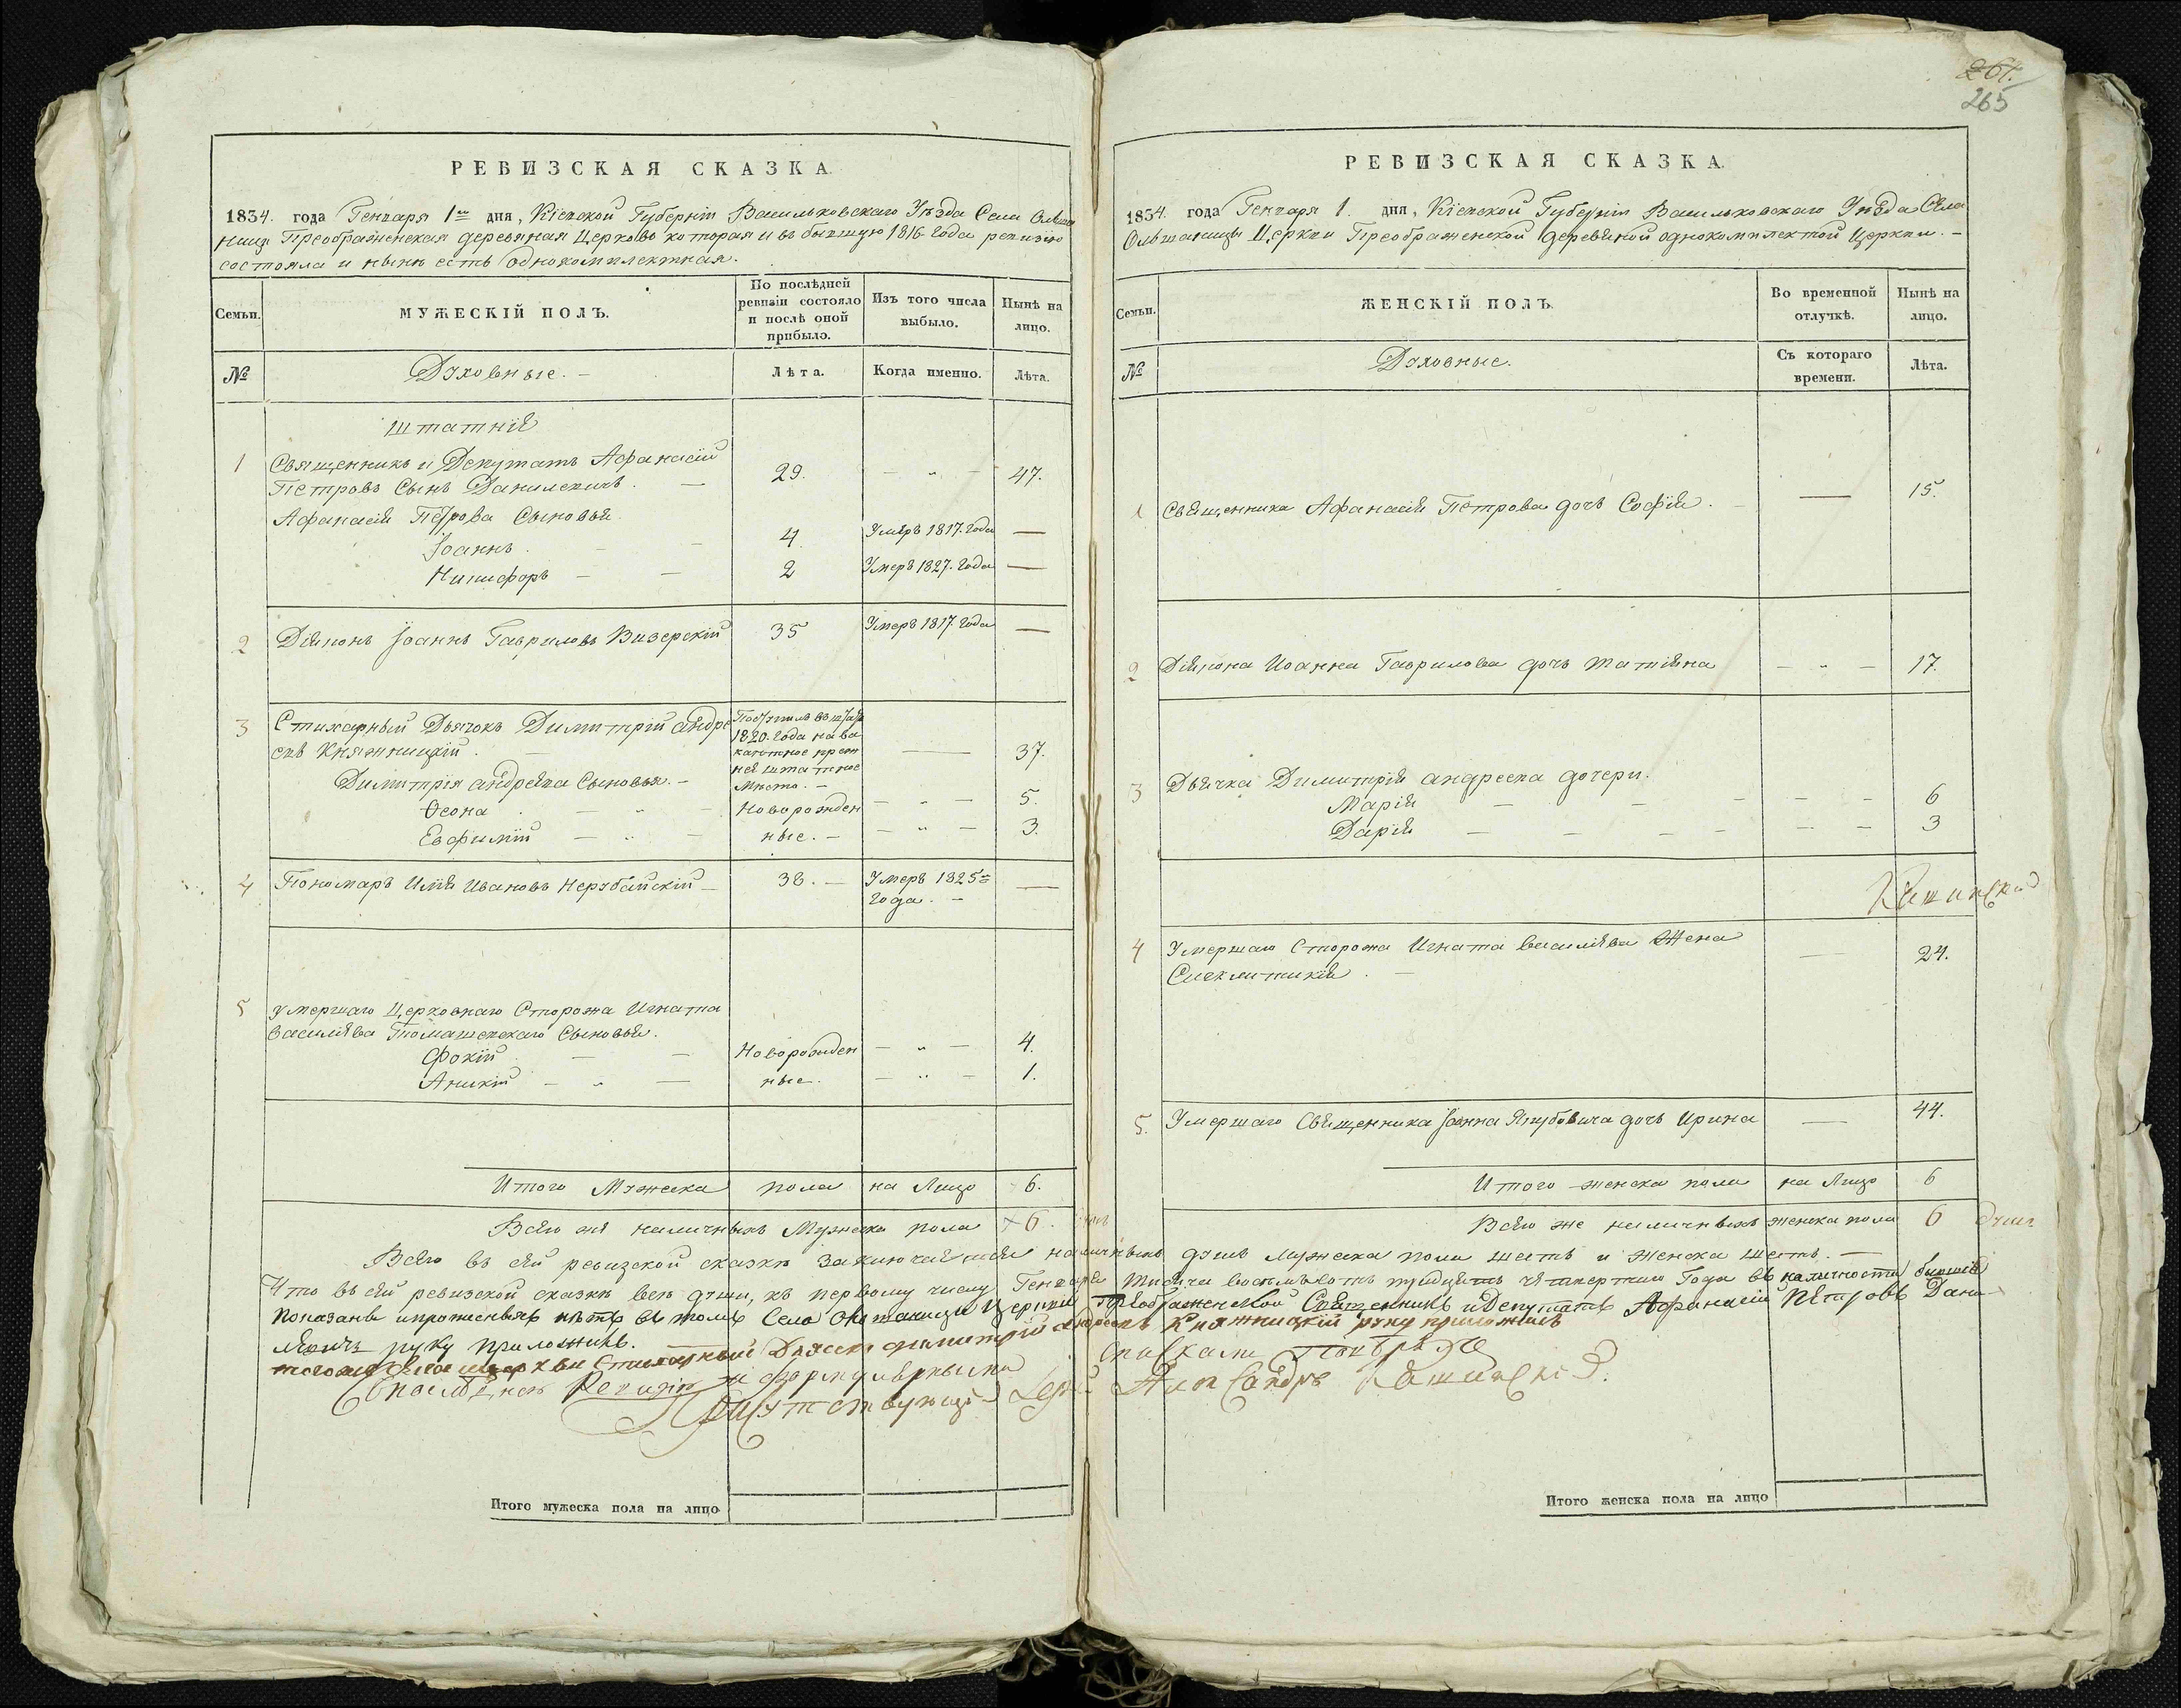 РЕВИЗСКАЯ СКАЗКА.
1834. года Генваря 1го дня, Кіевской Губерніи Васильковскаго Уѣзда Села Ольша
ницы Преображенская деревяная Церковь которая и въ бывшую 1816 года ревизію
состояла и нынѣ есть однокомплектная.
Семьи.
МУЖЕСКІЙ ПОЛЪ.
По послѣдней ревизіи состояло и послѣ оной прибыло.
Изъ того числа выбыло.
Нынѣ на лицо.
№
Духовные. –
Лѣта.
Когда именно.
Лѣта.
Штатніе
1 Священникъ и Депутатъ Афанасій
Петровъ Сынъ Данилевичъ. – 29. – „ – 47.
Афанасія Петрова Сыновья
Іоаннъ. 4 Умеръ 1817. Года —
Никифоръ – – 2 Умеръ 1827. Года —
2 Діяконъ Іоаннъ Гавриловъ Визерскій 35 Умеръ 1817 Года —
3 Стихарный Дьячокъ Димитрій андре
евъ Княжницкій. — 37.
Поступилъ въ штатъ
1820. Года на ва
кантное преж
нея штатное
Мѣсто. –
Димитрія андреева Сыновья. –
Ѳеона Новорожден – „ – 5.
Евфимій – „ – ные. – – „ – 3.
4 Пономаръ Илія Ивановъ Нерубайскій – 38. – Умеръ 1825го —
Года. –
5 Умершаго Церковнаго Сторожа Игната
Василіева Томашевскаго Сыновья.
Фокій – – Новорожден – „ – 4.
Аникій – „ – ные. – „ – 1.
Итого Мужеска пола на Лицо 6.
Всего же наличныхъ Мужеска пола 6.
Итого мужеска пола на лицо
264.
265
РЕВИЗСКАЯ СКАЗКА.
1834. года Генваря 1. дня, Кіевской Губерніи Васильковскаго Уѣзда Села
Ольшаницы Церкви Преображенской деревяной однокомплектной Церкви. –
Семьи.
ЖЕНСКІЙ ПОЛЪ.
Во временной отлучкѣ.
Нынѣ на лицо.
№
Духовные.
Съ котораго времени.
Лѣта.
1 Священника Афанасія Петрова дочь Софія. — 15.
2 Діякона Иоанна Гаврилова дочь Татіяна – „ – 17.
3 Дьячка Димитрія андреева дочери.
Марія – – – – – 6
Дарія – – – – – – 3
Кашинскій
4 Умершаго Сторожа Игната Василіева Жена — 24.
Синклитикія. –
5. Умершаго Священника Іоанна Якубовича дочь Ирина — 44.
Итого женска пола на Лицо 6
Всего же наличныхъ женска пола 6 душъ
Всего въ сей ревизской сказкѣ заключается наличныхъ душъ мужеска пола шесть и Женска шесть. –
Что въ сей ревизской сказкѣ всѣ души, къ первому числу Генваря тысяча восемьсотъ тридцать четвертаго Года въ наличности бывшіе
показаны и прописныхъ нѣтъ въ томъ Села Ольшаницы Церкви Преображенской Священникъ и Депутатъ Афанасій Петровъ Дани-
левичъ руку приложилъ.
тогожъ Села церкви Стихарный Дьячокъ Димитрій андреевъ Княжницкій руку приложилъ
Присутствующій Александръ Кашинскій.
Итого женска пола на лицо